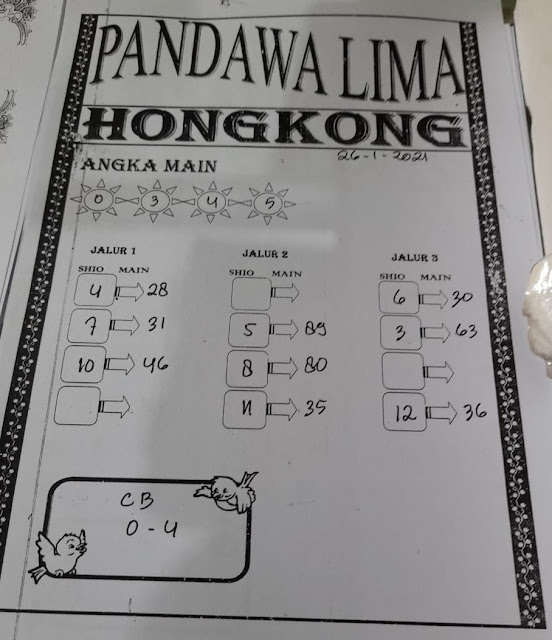 PANDAWA LIMA
HONGKONG
26-1-2021
ANGKA MAIN
0 3 4 5
JALUR 1
SHIO MAIN
4 28
7 31
10 46
JALUR 2
SHIO MAIN
5 89
8 80
11 35
JALUR 3
SHIO MAIN
6 30
3 63
12 36
CB
0-4